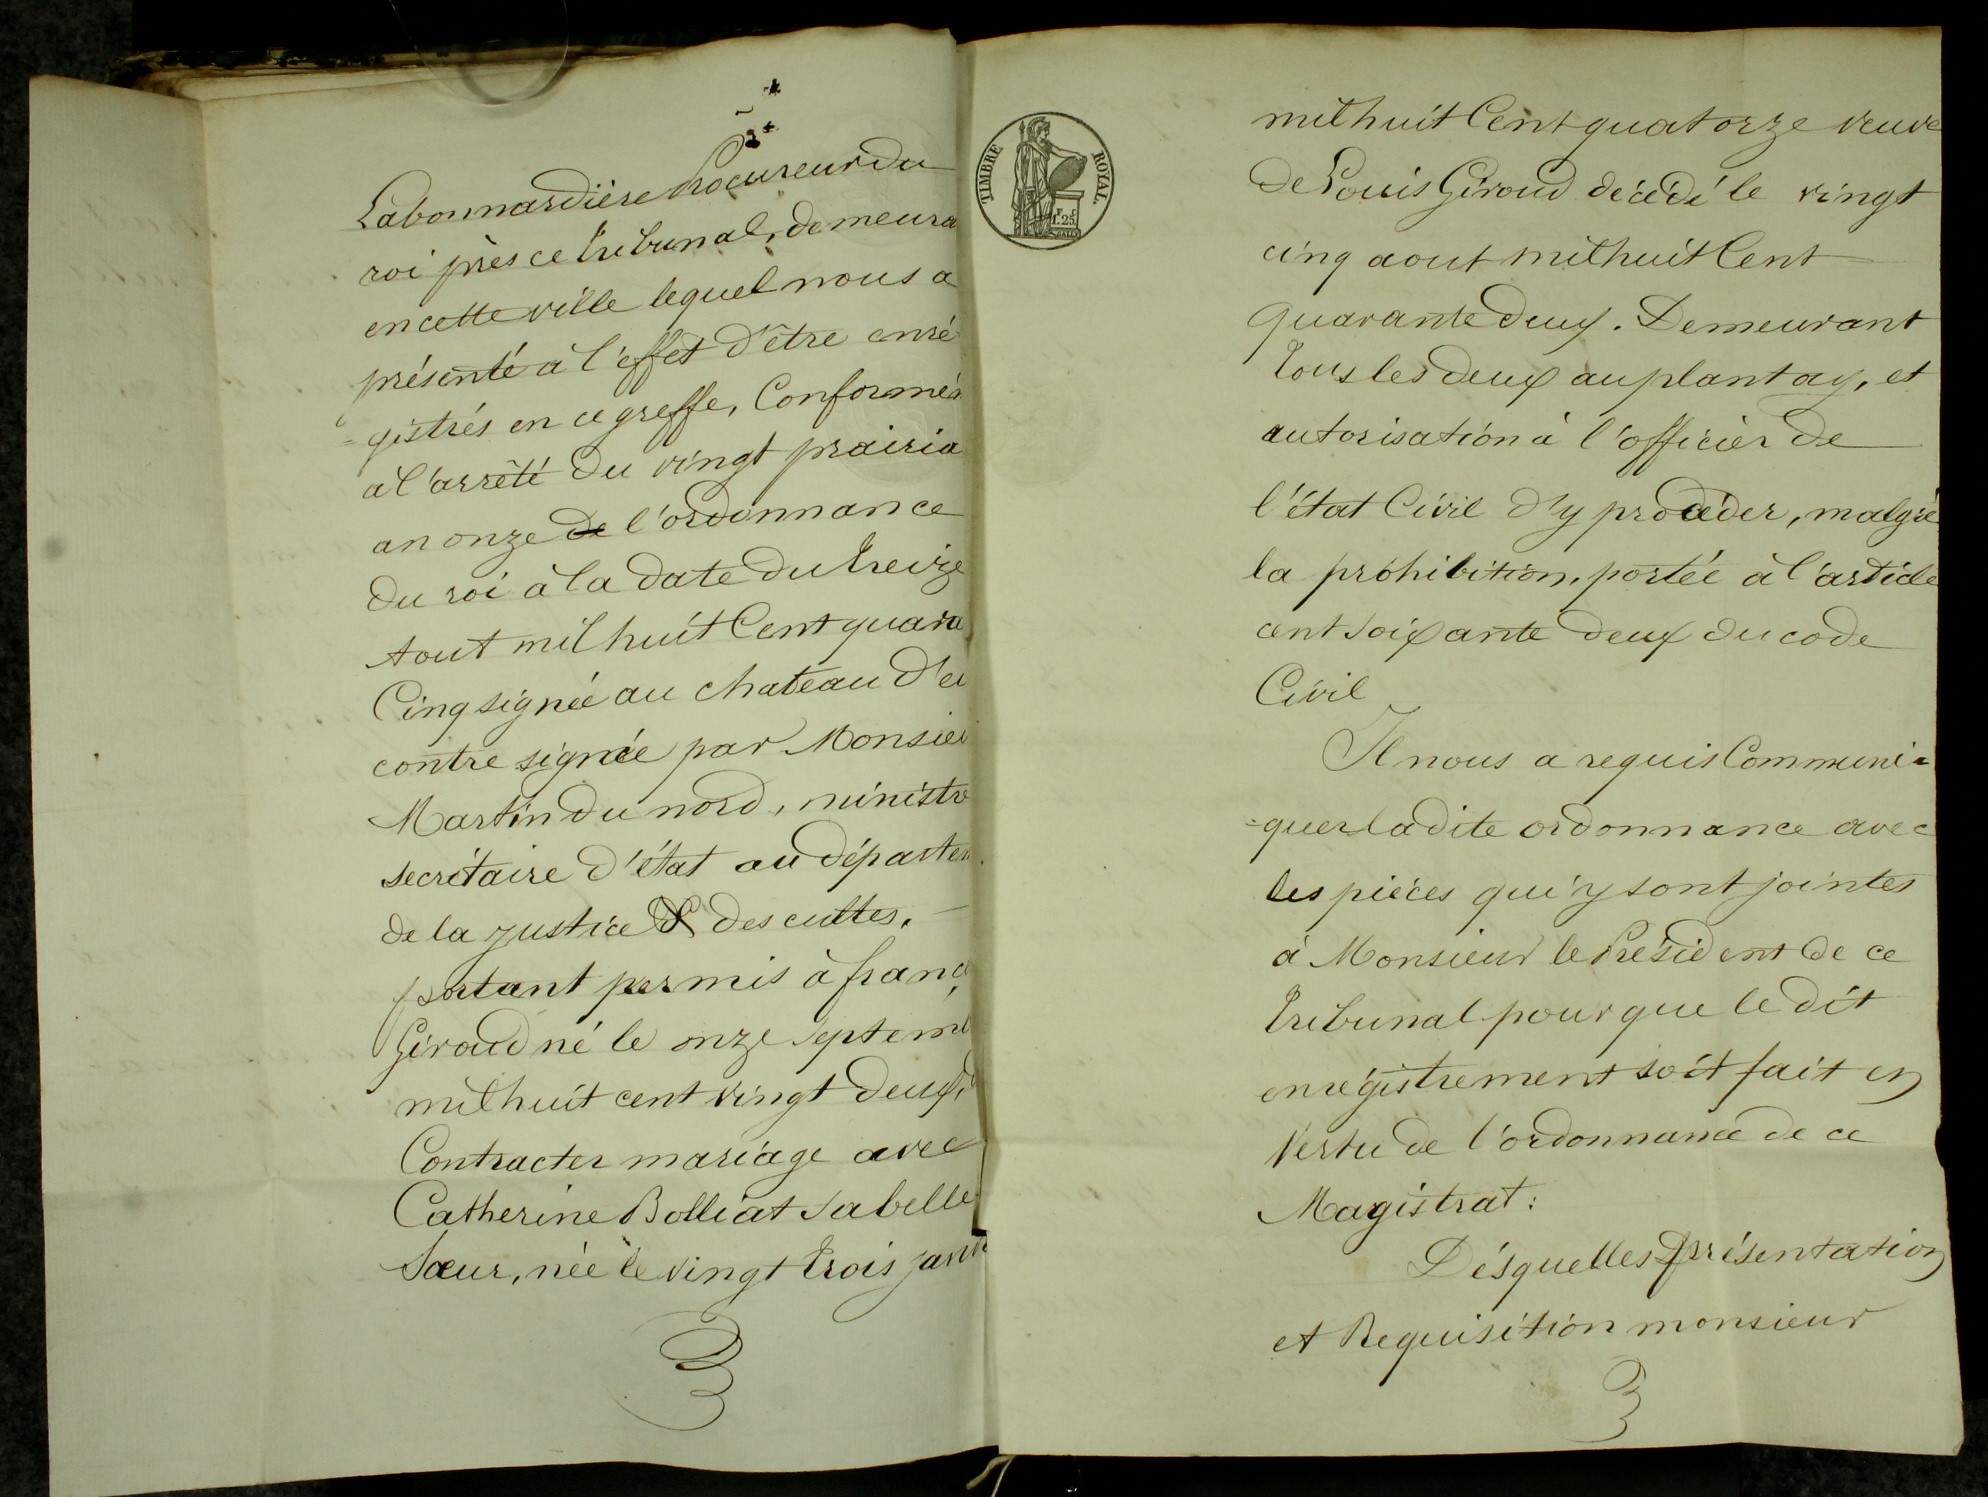 Labonnardière Procureur du
roi près ce tribunal, demeura
en cette ville lequel nous a
présenté à l'effet d'être enré
=gistrés en ce greffe, Conformém
à l'arrêté du vingt prairia
an onze de l'ordonnance
du roi à la date du treize
aout mil huit Cent quara
Cinq signée au chateau d'eu
contre signée par Monsieu
Martin du nord, ministre
secrétaire d'état au départem
de la justice & des cultes.
portant permis à franç
Giroud né le onze septemb
mil huit cent vingt deux, de
Contracter mariage avec
Catherine Bolliat sa belle
Sœur, née le vingt trois janv
TIMBRE ROYAL
1.25
mil huit Cent quatorze veuve
de Louis Giroud décédé le vingt
cinq aout mil huit Cent
quarante deux. Demeurant
tous les deux au plantay, et
autorisation à l'officier de
l'état Civil d'y procéder, malgré
la prohibition, portée à l'article
cent soixante deux du code
Civil
Il nous a requis Communi=
=quer la dite ordonnance avec
les pièces qui y sont jointes
à Monsieur le Président de ce
tribunal pour que le dit
enregistrement soit fait en
Vertu de l'ordonnance de ce
Magistrat:
Désquelles présentation
et Requisition monsieur